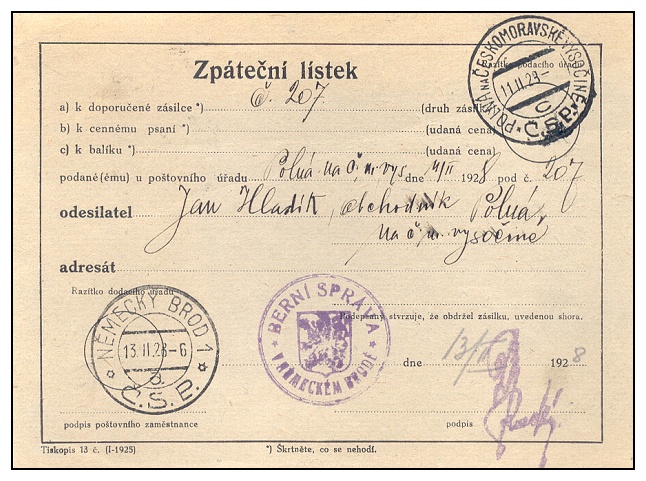 POLNÁ NA ČESKOMORAVSKÉ VYSOČINĚ
11.II.28-
C
* Č.S.P. *
Razítko podacího úřadu
Zpáteční lístek
a) k doporučené zásilce *) č. 207 (druh zásilky)
b) k cennému psaní *) (udaná cena)
c) k balíku *) (udaná cena)
podané(ému) u poštovního úřadu Polná na č. m. vys dne 11/II 1928 pod č. 207
odesilatel Jan Hladík, obchodník Polná,
na č. m. vysočině
adresát
Razítko dodacího úřadu
NĚMECKÝ BROD 1
13.II.28-6
Č.S.P.
BERNÍ SPRÁVA
V NĚMECKÉM BRODĚ
Podepsaný stvrzuje, že obdržel zásilku, uvedenou shora.
dne 13/II 1928
podpis poštovního zaměstnance
podpis
Tiskopis 13 č. (I-1925)
*) Škrtněte, co se nehodí.